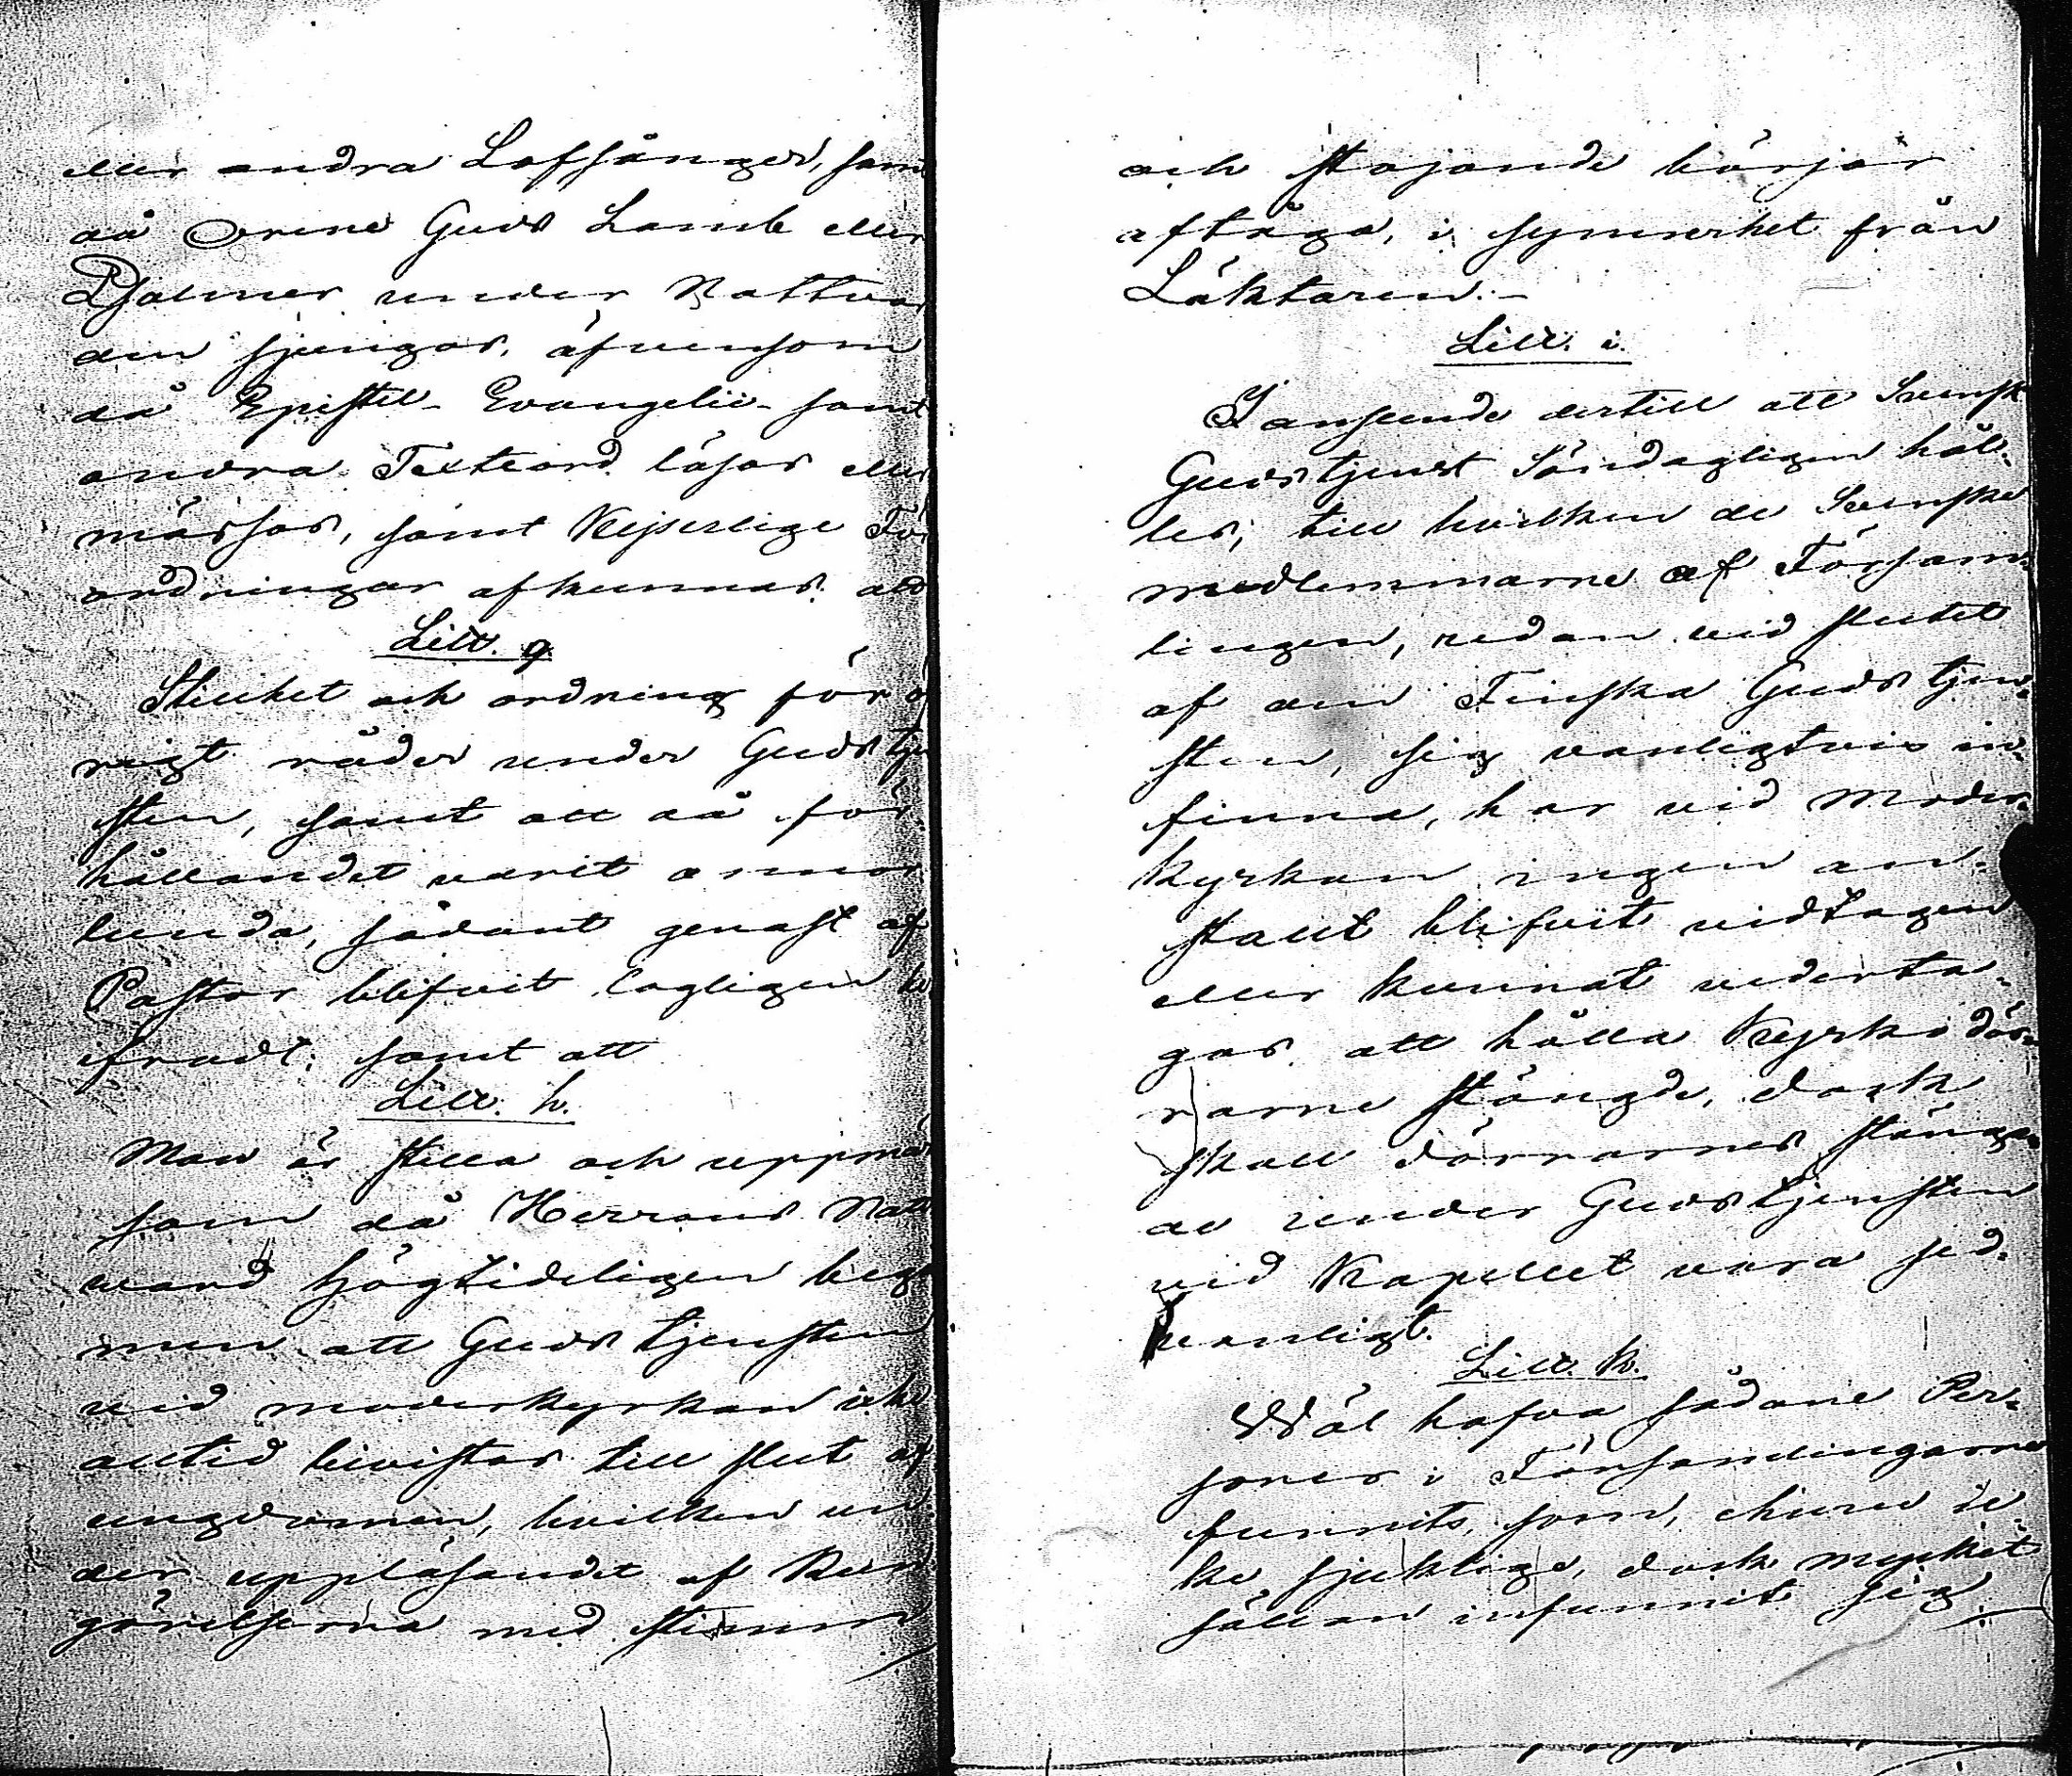 eller andra Lofsånger, sam
då Orene Guds Lamb eller
Psalmer under Nattva
den sjungas, äfvensom
då Epistel- Evangelii- samt
andra Texteord läsas eller
mässas, samt Kejserlige För
ordningar afkunnas. att
Litt. g.
Stillhet och ordning för ö
rigt råder under Gudstjen
sten, samt att då för
hållandet varit annor
lunda, sådant genast af
Pastor blifvit lagligen be
ifradt; samt att
Litt. h.
Man är stilla och uppmärk
sam då Herrans Natt
ward högtideligen begå
men att Gudstjensten
vid moderkyrkan icke
alltid bivistas till slut af
ungdomen, hvilken un
der uppläsandet af Kun
görelserna med stim
och stojande börjar
aftåga, i synnerhet från
Läktaren.-
Litt. i.
I anseende dertill att Svensk
Gudstjenst Söndagligen hål-
les, till hvilken de Svenske
medlemmarne af Försam-
lingen, redan vid slutet
af den Finska Gudstjen-
sten, sig vanligtvis in-
finna, har vid Moder-
kyrkan ingen an-
stalt blifvit vidtagen
eller kunnat vederta-
gas att hålla Kyrkodör-
rarne stängde, dock
skall dörrarnes stängan-
de under Gudstjensten
vid Kapellet vara sed-
vanligt.
Litt. k.
Wäl hafva sådane Per-
soner i Församlingarne
funnits, som, ehuru ic-
ke sjuklige, dock mycket
sällan infunnit sig